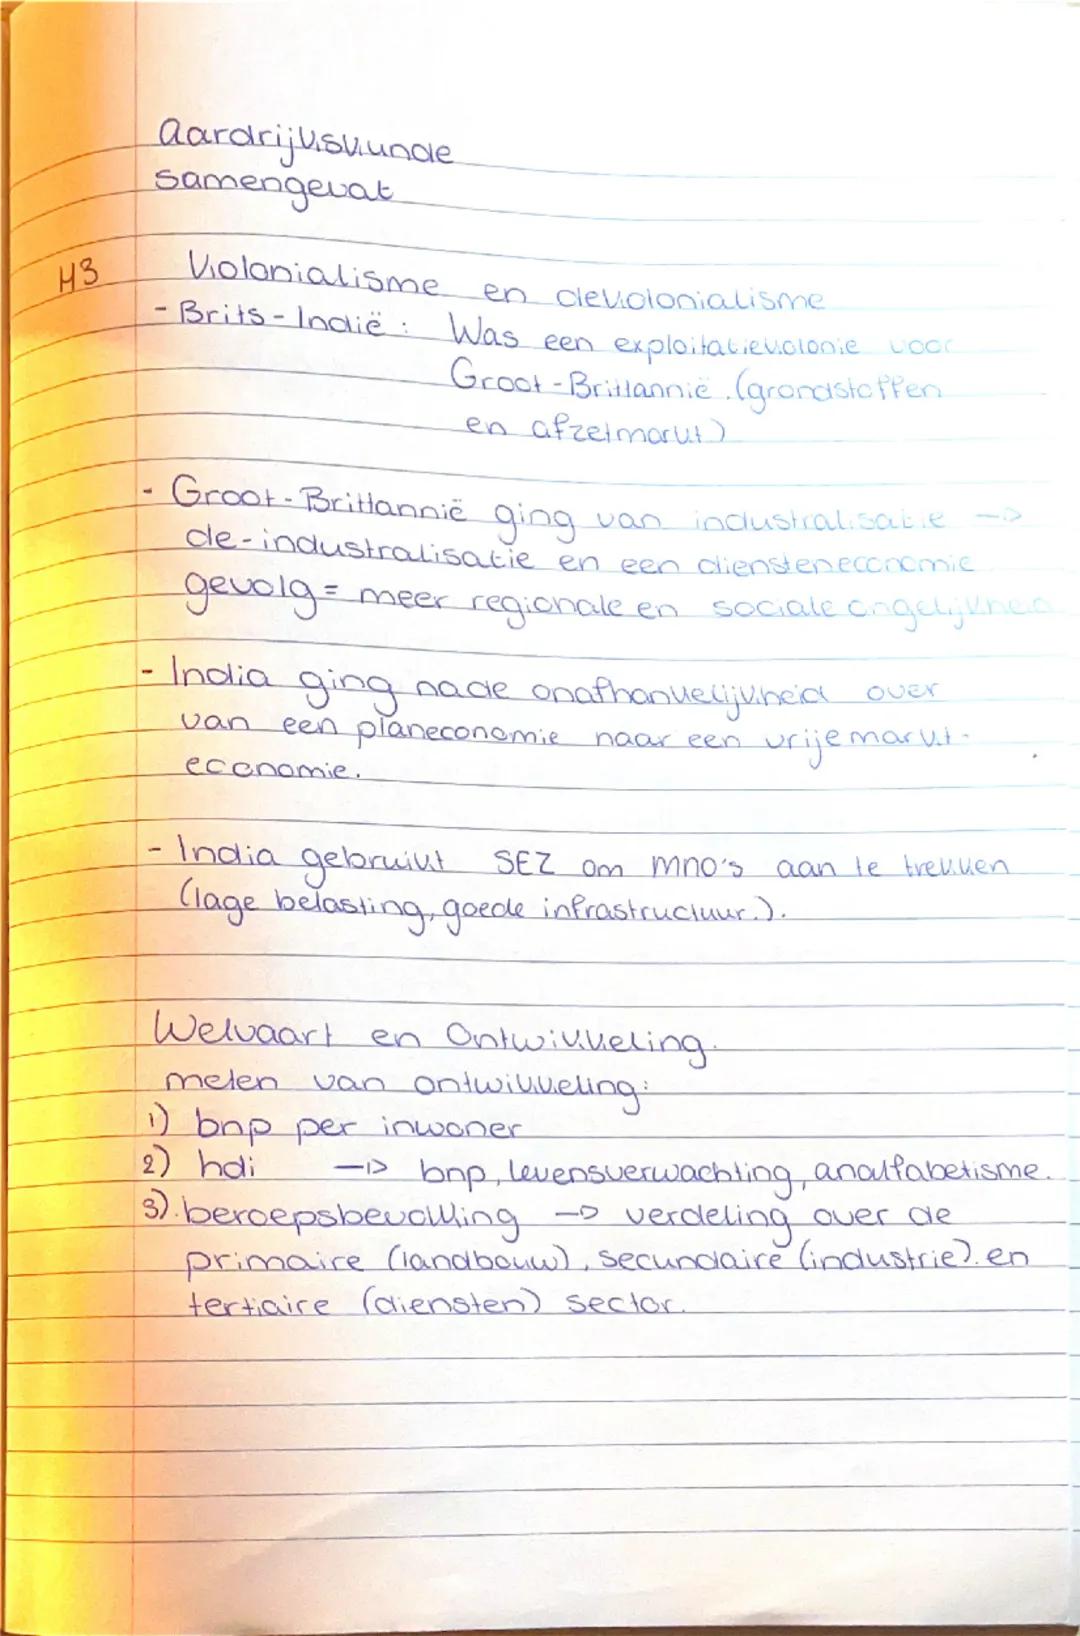 Aardrijkskunde
samengevat
H3 Kolonialisme en dekolonialisme
- Brits-Indië : Was een exploitatiekolonie voor
Groot-Brittannië. (grondstoffen
en afzetmarkt)
- Groot-Brittannië ging van industralisatie ->
de-industralisatie en een diensteneconomie
gevolg = meer regionale en sociale ongelijkheid
- India ging na de onafhankelijkheid over
van een planeconomie naar een vrije markt-
economie.
- India gebruikt SEZ om mno's aan te trekken
(lage belasting, goede infrastructuur.).
Welvaart en Ontwikkeling.
meten van ontwikkeling:
1) bnp per inwoner
2) hdi -> bnp, levensverwachting, analfabetisme.
3). beroepsbevolking -> verdeling over de
primaire (landbouw), secundaire (industrie). en
tertiaire (diensten) sector.